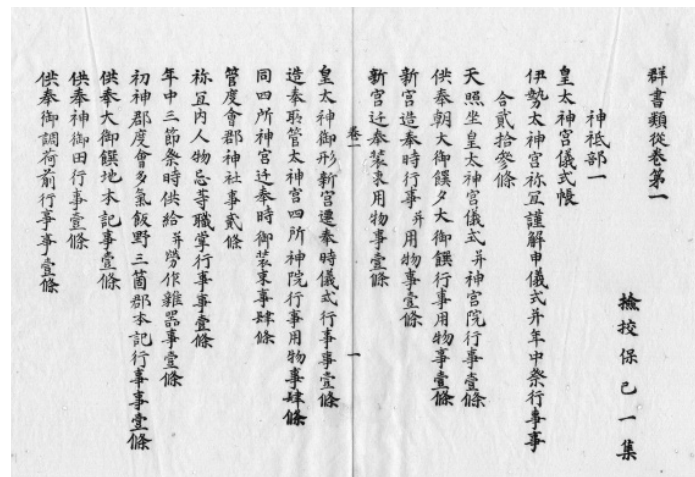 群書類從卷第一
檢挍保己一集
神祇部一
皇太神宮儀式帳
伊勢太神宮祢冝謹解申儀式并年中祭行事事
合貳拾參條
天照坐皇太神宮儀式并神宮院行事壹條
供奉朝大御饌夕大御饌行事用物事壹條
新宮造奉時行事并用物事壹條
新宮迁奉裝束用物事壹條
卷一
一
皇太神御形新宮遷奉時儀式行事事壹條
造奉所管太神宮四所神院行事用物事肆條
同四所神宮迁奉時御裝束事肆條
管度會郡神社事貳條
祢冝内人物忌等職掌行事事壹條
年中三節祭時供給并勞作雜器事壹條
初神郡度會多氣飯野三箇郡本記行事事壹條
供奉大御饌地本記事壹條
供奉神御田行事壹條
供奉御調荷前行事事壹條